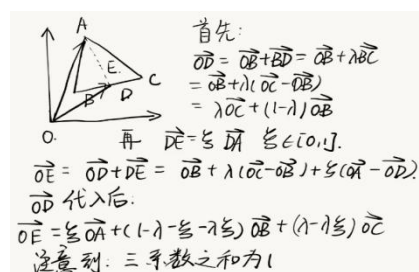 A
首先:
OD = OB + BD = OB + λBC
E.
C
= OB + λ(OC - OB)
B
D
= λOC + (1-λ)OB
O.
再 DE = ξ DA ξ∈[0,1].
OE = OD + DE = OB + λ(OC - OB) + ξ(OA - OD)
OD 代入后:
OE = ξOA + (1-λ-ξ-λξ) OB + (λ-λξ) OC
注意到: 三系数之和为1